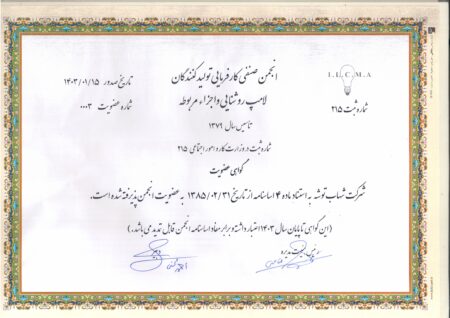 انجمن صنفی کارفرمایی تولیدکنندگان
لامپ روشنایی و اجزاء مربوطه
تاسیس سال ۱۳۷۹
شماره ثبت در وزارت کار و امور اجتماعی ۲۱۵
I.L.C.M.A
شماره ثبت ۲۱۵
تاریخ صدور ۱۴۰۳/۰۱/۱۵
شماره عضویت ۰۰۰۳
گواهی عضویت
شرکت شهاب توشه به استناد ماده ۴ اساسنامه از تاریخ ۱۳۸۵/۰۲/۳۱ به عضویت انجمن پذیرفته شده است.
(این گواهی تا پایان سال ۱۴۰۳ اعتبار داشته و برابر مفاد اساسنامه انجمن قابل تمدید می باشد.)
رئیس هیئت مدیره